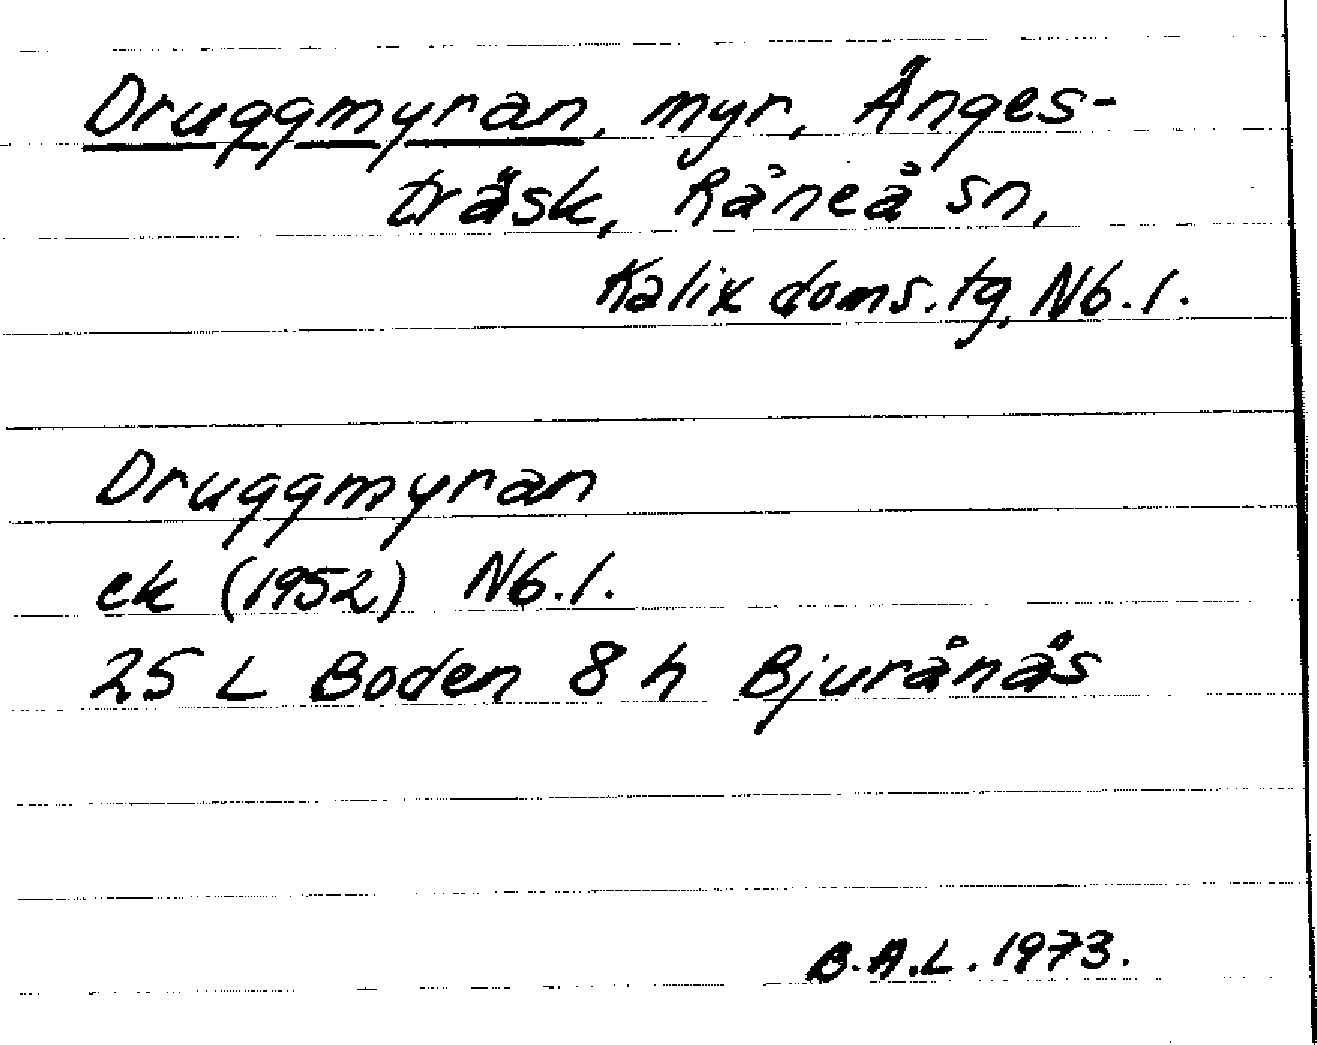 Druggmyran, myr, Ånges-
träsk, Råneå sn,
Kalix doms.tg, Nb.l.
Druggmyran
ek (1952) Nb.l.
25 L Boden 8 h Bjurånäs
B.A.L. 1973.